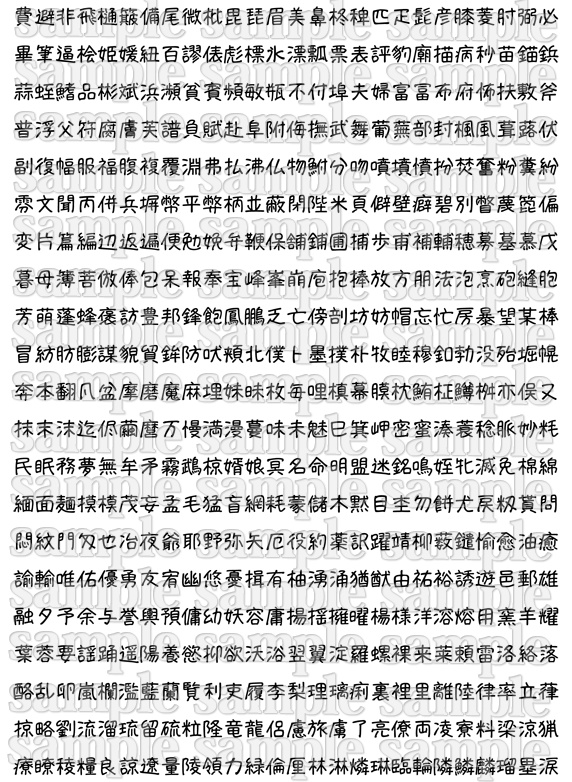 費避非飛樋簸備尾微枇毘琵眉美鼻柊稗匹疋髭彦膝菱肘弼必
畢筆逼桧姫媛紐百謬俵彪標氷漂瓢票表評豹廟描病秒苗錨鋲
蒜蛭鰭品彬斌浜瀕貧賓頻敏瓶不付埠夫婦富冨布府怖扶敷斧
普浮父符腐膚芙譜負賦赴阜附侮撫武舞葡蕪部封楓風葺蕗伏
副復幅服福腹複覆淵弗払沸仏物鮒分吻噴墳憤扮焚奮粉糞紛
雰文聞丙併兵塀幣平弊柄並蔽閉陛米頁僻壁癖碧別瞥蔑箆偏
変片篇編辺返遍便勉娩弁鞭保舗鋪圃捕歩甫補輔穂募墓慕戊
暮母簿菩倣俸包呆報奉宝峰峯崩庖抱捧放方朋法泡烹砲縫胞
芳萌蓬蜂褒訪豊邦鋒飽鳳鵬乏亡傍剖坊妨帽忘忙房暴望某棒
冒紡肪膨謀貌貿鉾防吠頬北僕卜墨撲朴牧睦穆釦勃没殆堀幌
奔本翻凡盆摩磨魔麻埋妹昧枚毎哩槙幕膜枕鮪柾鱒桝亦俣又
抹末沫迄侭繭麿万慢満漫蔓味未魅巳箕岬密蜜湊蓑稔脈妙粍
民眠務夢無牟矛霧鵡椋婿娘冥名命明盟迷銘鳴姪牝滅免棉綿
緬面麺摸模茂妄孟毛猛盲網耗蒙儲木黙目杢勿餅尤戻籾貰問
悶紋門匁也冶夜爺耶野弥矢厄役約薬訳躍靖柳薮鑓愉愈油癒
諭輸唯佑優勇友宥幽悠憂揖有柚湧涌猶猷由祐裕誘遊邑郵雄
融夕予余与誉輿預傭幼妖容庸揚揺擁曜楊様洋溶熔用窯羊耀
葉蓉要謡踊遥陽養慾抑欲沃浴翌翼淀羅螺裸来莱頼雷洛絡落
酪乱卵嵐欄濫藍蘭覧利吏履李梨理璃痢裏裡里離陸律率立葎
掠略劉流溜琉留硫粒隆竜龍侶慮旅虜了亮僚両凌寮料梁涼猟
療瞭稜糧良諒遼量陵領力緑倫厘林淋燐琳臨輪隣鱗麟瑠塁涙